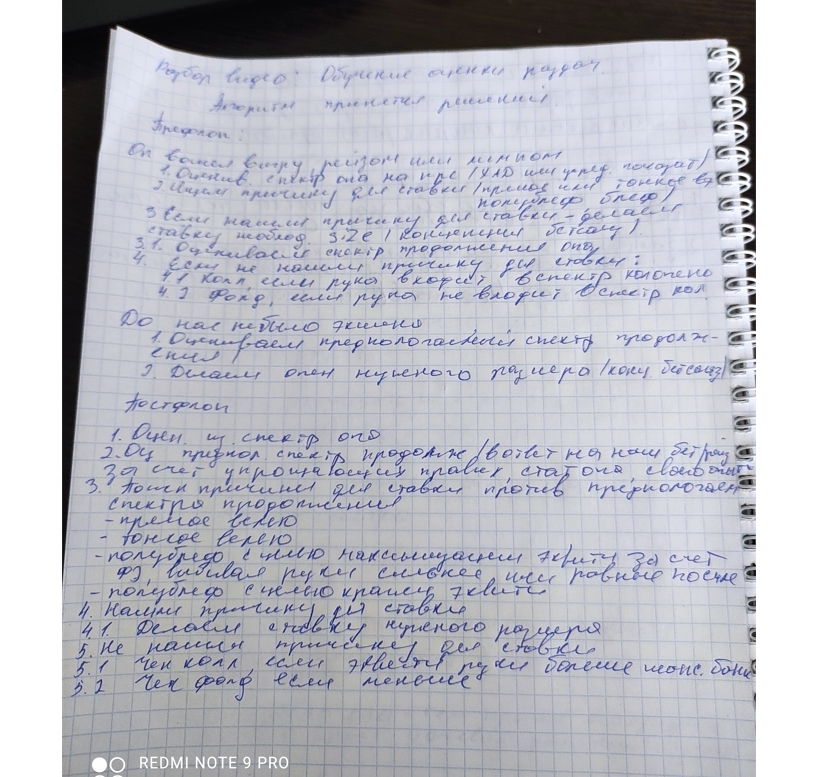 Разбор видео: Обучение оценки раздач
Алгоритм принятия решений
Префлоп:
Оп вошел в игру рейзом или лимпом
1. Оценив. спектр опа на прс (УЛД или упред. походят)
2. Ищем причину для ставки (прямое или тонкое вэ
полублеф блеф)
3 Если нашли причину для ставки - делаем
ставку необход. SIZE (концепция бетсайз)
3.1. Оцениваем спектр продолжения опа
4. Если не нашли причину для ставки:
4.1 Колл, если рука входит в спектр
4.2 Фолд, если рука не входит в спектр кол.
До нас не было экшена
1. Оцениваем предпологаемый спектр продолж-
ения
2. Делаем опен нужного размера (конц. бетсайз)
Постфлоп
1. Оцен. спектр опа
2. Оц предпол спектр продолж (в ответ на наш бет/
за счет упрощающих правил стат опа своего опыт
3. Поиск причины для ставки против предпологаем
спектра продолжения
- прямое велью
- тонкое велью
- полублеф с целью максимизации эквити за счет
ФЭ, выбивая руки сильнее или равные по силе
- полублеф с целью кражи эквити
4. Нашли причину для ставки
4.1. Делаем ставку нужного размера
5. Не нашли причину для ставки
5.1 Чек колл, если эквити руки больше шанс. банк
5.2 Чек фолд если меньше
REDMI NOTE 9 PRO